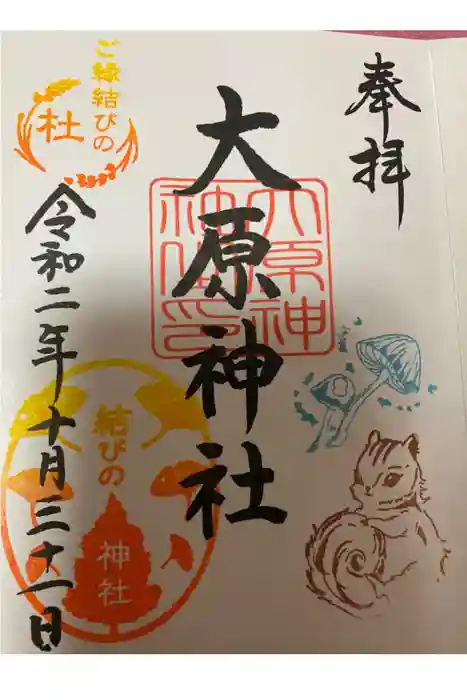 奉拝
大原神社
大原神
社御印
ご縁結びの
杜
令和二年十月三十一日
結びの
神社